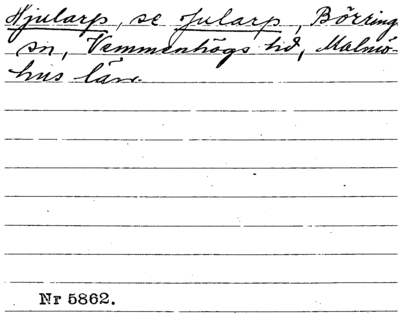 Hjularp, se Jularp, Börring
sn, Vemmenhögs hd, Malmö-
hus län.
Nr 5862.